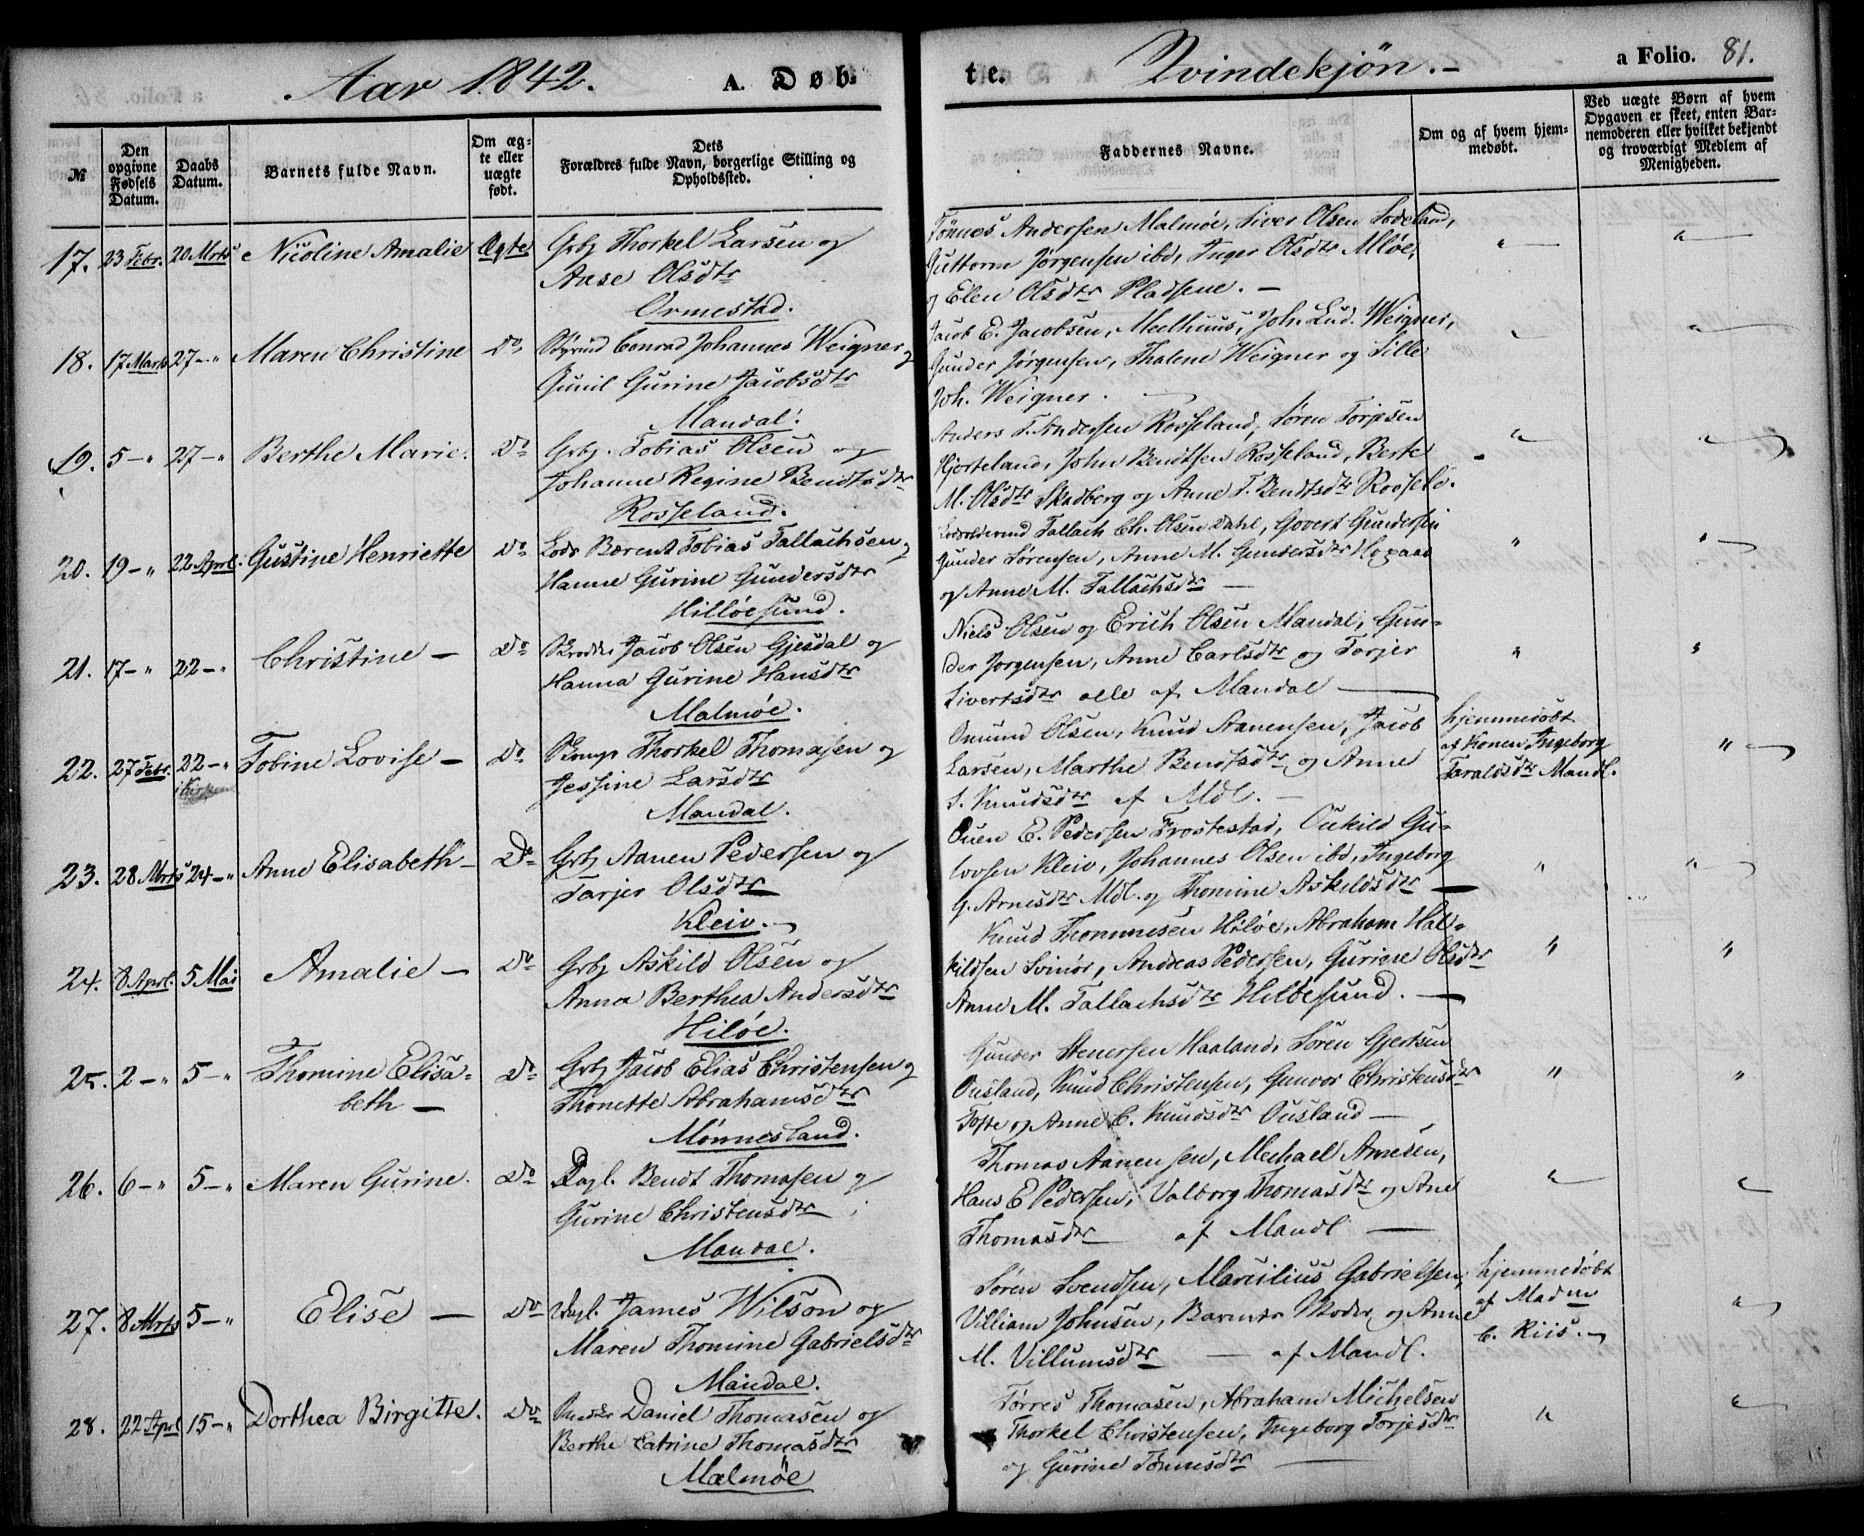 Aar 1842.
A. Døb-
te.
Qvindekjön.-
a Folio. 81.
№
Den opgivne Fødsels Datum.
Daabs Datum.
Barnets fulde Navn.
Om ægte eller uægte født.
Dets Forældres fulde Navn, borgerlige Stilling og Opholdssted.
Faddernes Navne.
Om og af hvem hjemmedøbt.
Ved uægte Børn af hvem Opgaven er skeet, enten Barnemoderen eller hvilket bekjendt og troværdigt Medlem af Menigheden.
17. 23 Febr. 20 Mrts Nicoline Amalie Ægte Grbj Thorkel Larsen og
Aase Olsdtr
Ormestad.
Tönnes Andersen Malmöe, Siver Olsen Sodeland,
Guttorm Jörgensen ibd, Inger Olsdtr Mlöe,
og Elen Olsdtr Pladsene. -
18. 17 Marts 27 - " Maren Christine Do Conrad Johannes Weigner og
Gunil Gurine Jacobsdtr
Mandal.
Jacob E. Jacobsen, Meelhuus, Joh. Lud. Weigner,
Gunder Jörgensen, Thalene Weigner og Sille
Joh. Weigner.
19. 5 - " 27 - " Berthe Marie. Do Grbj. Tobias Olsen og
Johanne Regine Bendtsdtr
Rosseland.
Anders T. Andersen Rosseland, Sören Torjesen
Hjorteland, John Bendtsen Rosseland, Berte
M. Olsdtr Skadberg og Anne T. Bendtsdtr Rossel.
20. 19 - " 22 Aprl. Gustine Henriette Do Lods Bærent Tobias Tallachsen og
Hanne Gurine Gundersdtr
Hillöesund.
Tallach Ch. Olsen Dahl, Govert Gundersen
Gunder Sörensen, Anne M. Gundersdtr
og Anne M. Tallachsdtr -
21. 17 - " 22 - " Christine - Do Jacob Olsen Gjesdal og
Hanna Gurine Hansdtr
Malmöe.
Niels Olsen og Erich Olsen Mandal, Gun-
der Jorgensen, Anne Carlsdtr og Torjer
Sivertsdtr alle af Mandal
22. 27 Febr. 22 - " Tobine Lovise - Do Thorkel Thomasen og
Jessine Larsdtr
Mandal.
Omund Olsen, Knud Aanensen, Jacob
Larsen, Marthe Bendtsdtr og Anne
S. Knudsdtr af Mdl. -
hjemmedöbt
af Konen Ingeborg
Taraldsdtr Mandl.
23. 28 Mrts 24 - " Anne Elisabeth - Do Grbj Aanen Pedersen og
Tarjer Olsdtr
Kleiv.
Ouen E. Pedersen Frostestad, Oukild Gu-
lovsen Kleiv, Johannes Olsen ibd, Ingeborg
G. Arnesdtr Mdl. og Thomine Askildsdtr
24. 8 Aprl. 5 Mai Amalie - Do Grbj Askild Olsen og
Anna Berthea Andersdtr
Hilöe.
Knud Thommesen Hilöe, Abraham Hal-
kildsen Svinör, Andreas Pedersen, Gurine Olsdtr
Anne M. Tallachsdtr Hillöesund. -
25. 2 - " 5 - " Thomine Elisa- Do Grbj Jacob Elias Christensen og
beth - Thonette Abrahamsdtr
Mönnesland.
Gunder Stenersen Haaland, Sören Gjertsen
Ousland, Knud Christensen, Gunvor Christensdtr
Tofte og Anne C. Knudsdtr Ousland -
26. 6 - " 5 - " Maren Gurine. Do Dagl. Bendt Thomasen og
Gurine Christensdtr
Mandal.
Thomas Aanensen, Mechael Arnesen,
Hans E Pedersen, Valborg Thomasdtr og Ane
Thomasdtr af Mandl
27. 8 Mrts 5 - " Elise - Do Dagl. James Wilson og
Maren Thomine Gabrielsdtr
Mandal.
Sören Svendsen, Marcilius Gabrielsen,
Villiam Johnsen, Barnets Moder, og Anne
M. Villumsdtr - af Mandl.
hjemmedöbt
af Madm
C. Riis.
28. 22 Aprl 15 - " Dorthea Birgitte. Do Daniel Thomasen og
Berthe Catrine Thomasdtr
Malmöe
Törres Thomasen, Abraham Michelsen
Thorkel Christensen, Ingeborg Torjesdtr
og Gurine Tönnesdtr